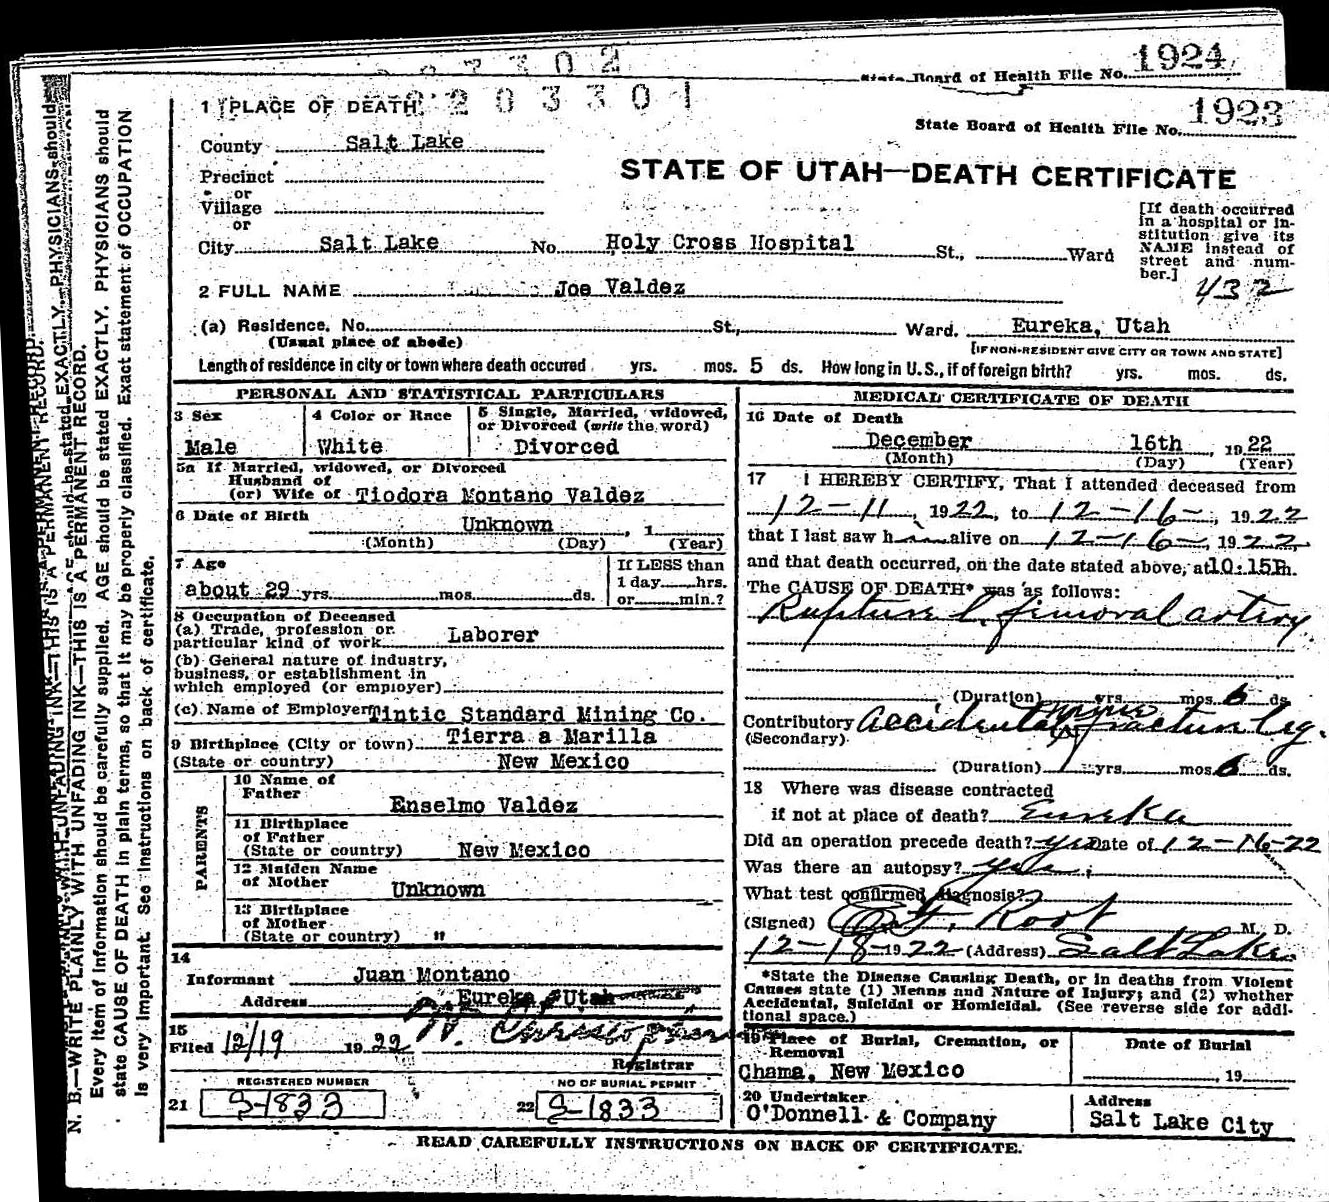 State Board of Health File No. 1924
2203301
State Board of Health File No. 1923
1 PLACE OF DEATH
County Salt Lake
STATE OF UTAH—DEATH CERTIFICATE
Precinct
or
Village
or
City Salt Lake No. Holy Cross Hospital St., Ward
[If death occurred
in a hospital or in-
stitution give its
NAME instead of
street and num-
ber.]
432
2 FULL NAME Joe Valdez
(a) Residence. No. St., Ward. Eureka, Utah
(Usual place of abode) [IF NON-RESIDENT GIVE CITY OR TOWN AND STATE]
Length of residence in city or town where death occured yrs. mos. 5 ds. How long in U. S., if of foreign birth? yrs. mos. ds.
PERSONAL AND STATISTICAL PARTICULARS
3 Sex
Male
4 Color or Race
White
5 Single, Married, widowed,
or Divorced (write the word)
Divorced
5a If Married, widowed, or Divorced
Husband of
(or) Wife of Tiodora Montano Valdez
6 Date of Birth
Unknown , 1
(Month) (Day) (Year)
7 Age
about 29 yrs. mos. ds.
If LESS than
1 day hrs.
or min.?
8 Occupation of Deceased
(a) Trade, profession or
particular kind of work Laborer
(b) General nature of industry,
business, or establishment in
which employed (or employer)
(c) Name of Employer Tintic Standard Mining Co.
9 Birthplace (City or town) Tierra a Marilla
(State or country) New Mexico
PARENTS
10 Name of
Father
Enselmo Valdez
11 Birthplace
of Father
(State or country) New Mexico
12 Maiden Name
of Mother Unknown
13 Birthplace
of Mother
(State or country) "
14
Informant Juan Montano
Address Eureka, Utah
15
Filed 12/19 1922
Registrar
REGISTERED NUMBER
21 S-1833
NO OF BURIAL PERMIT
22 S-1833
MEDICAL CERTIFICATE OF DEATH
16 Date of Death
December 16th , 1922
(Month) (Day) (Year)
17 I HEREBY CERTIFY, That I attended deceased from
12-11, 1922, to 12-16-, 1922
that I last saw h alive on 12-16-, 1922,
and that death occurred, on the date stated above, at 10:15P m.
The CAUSE OF DEATH* was as follows:
Rupture l. femoral artery
(Duration) yrs. mos. 6 ds.
Contributory Accidental mine fracture leg.
(Secondary)
(Duration) yrs. mos. 6 ds.
18 Where was disease contracted
if not at place of death? Eureka
Did an operation precede death? yes Date of 12-16-22
Was there an autopsy? yes
What test confirmed diagnosis?
(Signed) Root M. D.
12-18-1922 (Address) Salt Lake.
*State the Disease Causing Death, or in deaths from Violent
Causes state (1) Means and Nature of Injury; and (2) whether
Accidental, Suicidal or Homicidal. (See reverse side for addi-
tional space.)
19 Place of Burial, Cremation, or
Removal
Chama, New Mexico
Date of Burial
, 19
20 Undertaker
O'Donnell & Company
Address
Salt Lake City
READ CAREFULLY INSTRUCTIONS ON BACK OF CERTIFICATE.
N. B.—WRITE PLAINLY WITH UNFADING INK—THIS IS A PERMANENT RECORD.
Every item of information should be carefully supplied. AGE should be stated EXACTLY. PHYSICIANS should
state CAUSE OF DEATH in plain terms, so that it may be properly classified. Exact statement of OCCUPATION
is very important. See instructions on back of certificate.